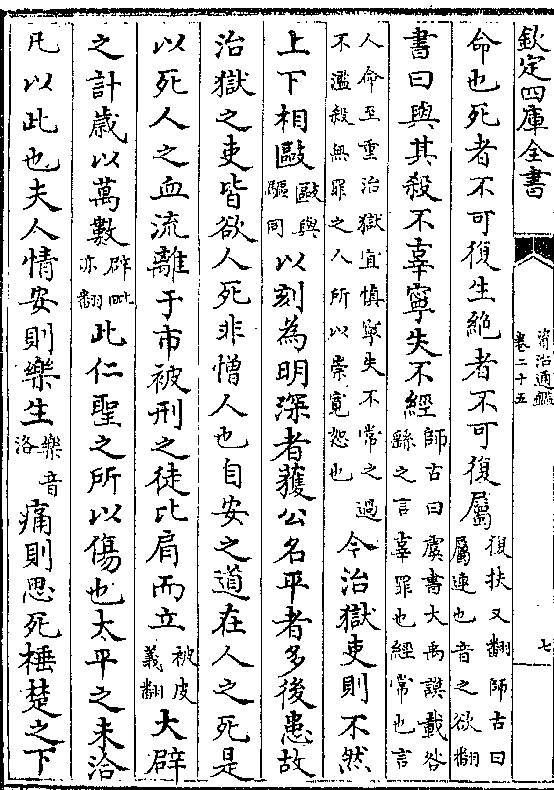 欽定四庫全書
資治通鑑
卷二十五
七
命也死者不可復生絶者不可復屬復扶又翻師古曰屬連也音之欲翻
書曰與其殺不辜寧失不經師古曰虞書大禹謨載咎繇之言辜罪也經常也言
人命至重治獄宜慎寧失不常之過不濫殺無罪之人所以崇寛恕也今治獄吏則不然
上下相敺敺與驅同以刻為明深者獲公名平者多後患故
治獄之吏皆欲人死非憎人也自安之道在人之死是
以死人之血流離于市被刑之徒比肩而立被皮義翻大辟
之計歲以萬數辟毗亦翻此仁聖之所以傷也太平之未洽
凡以此也夫人情安則樂生樂音洛痛則思死棰楚之下